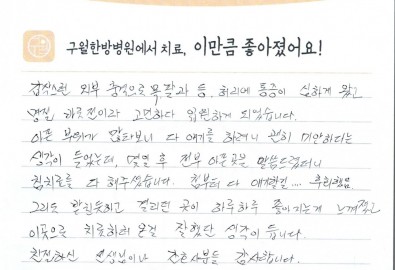 구월한방병원에서 치료, 이만큼 좋아졌어요!
갑작스런 외부 충격으로 목, 팔과 등, 허리에 통증이 심하게 왔고
명절 하루전이라 고민하다 입원하게 되었습니다.
아픈 부위가 많다보니 다 얘기를 하려니 괜히 미안하다는
생각이 들었는데, 몇일 후 전부 아픈곳을 말씀드렸더니
침치료를 다 해주셨습니다. 첨부터 다 얘기할걸... 후회했음.
그래도 찾고 걸리던 곳이 하루하루 좋아지는게 느껴졌고
이곳으로 치료하러 온걸 잘했단 생각이 듭니다.
친절하신 선생님이나 간호사분들 감사합니다.